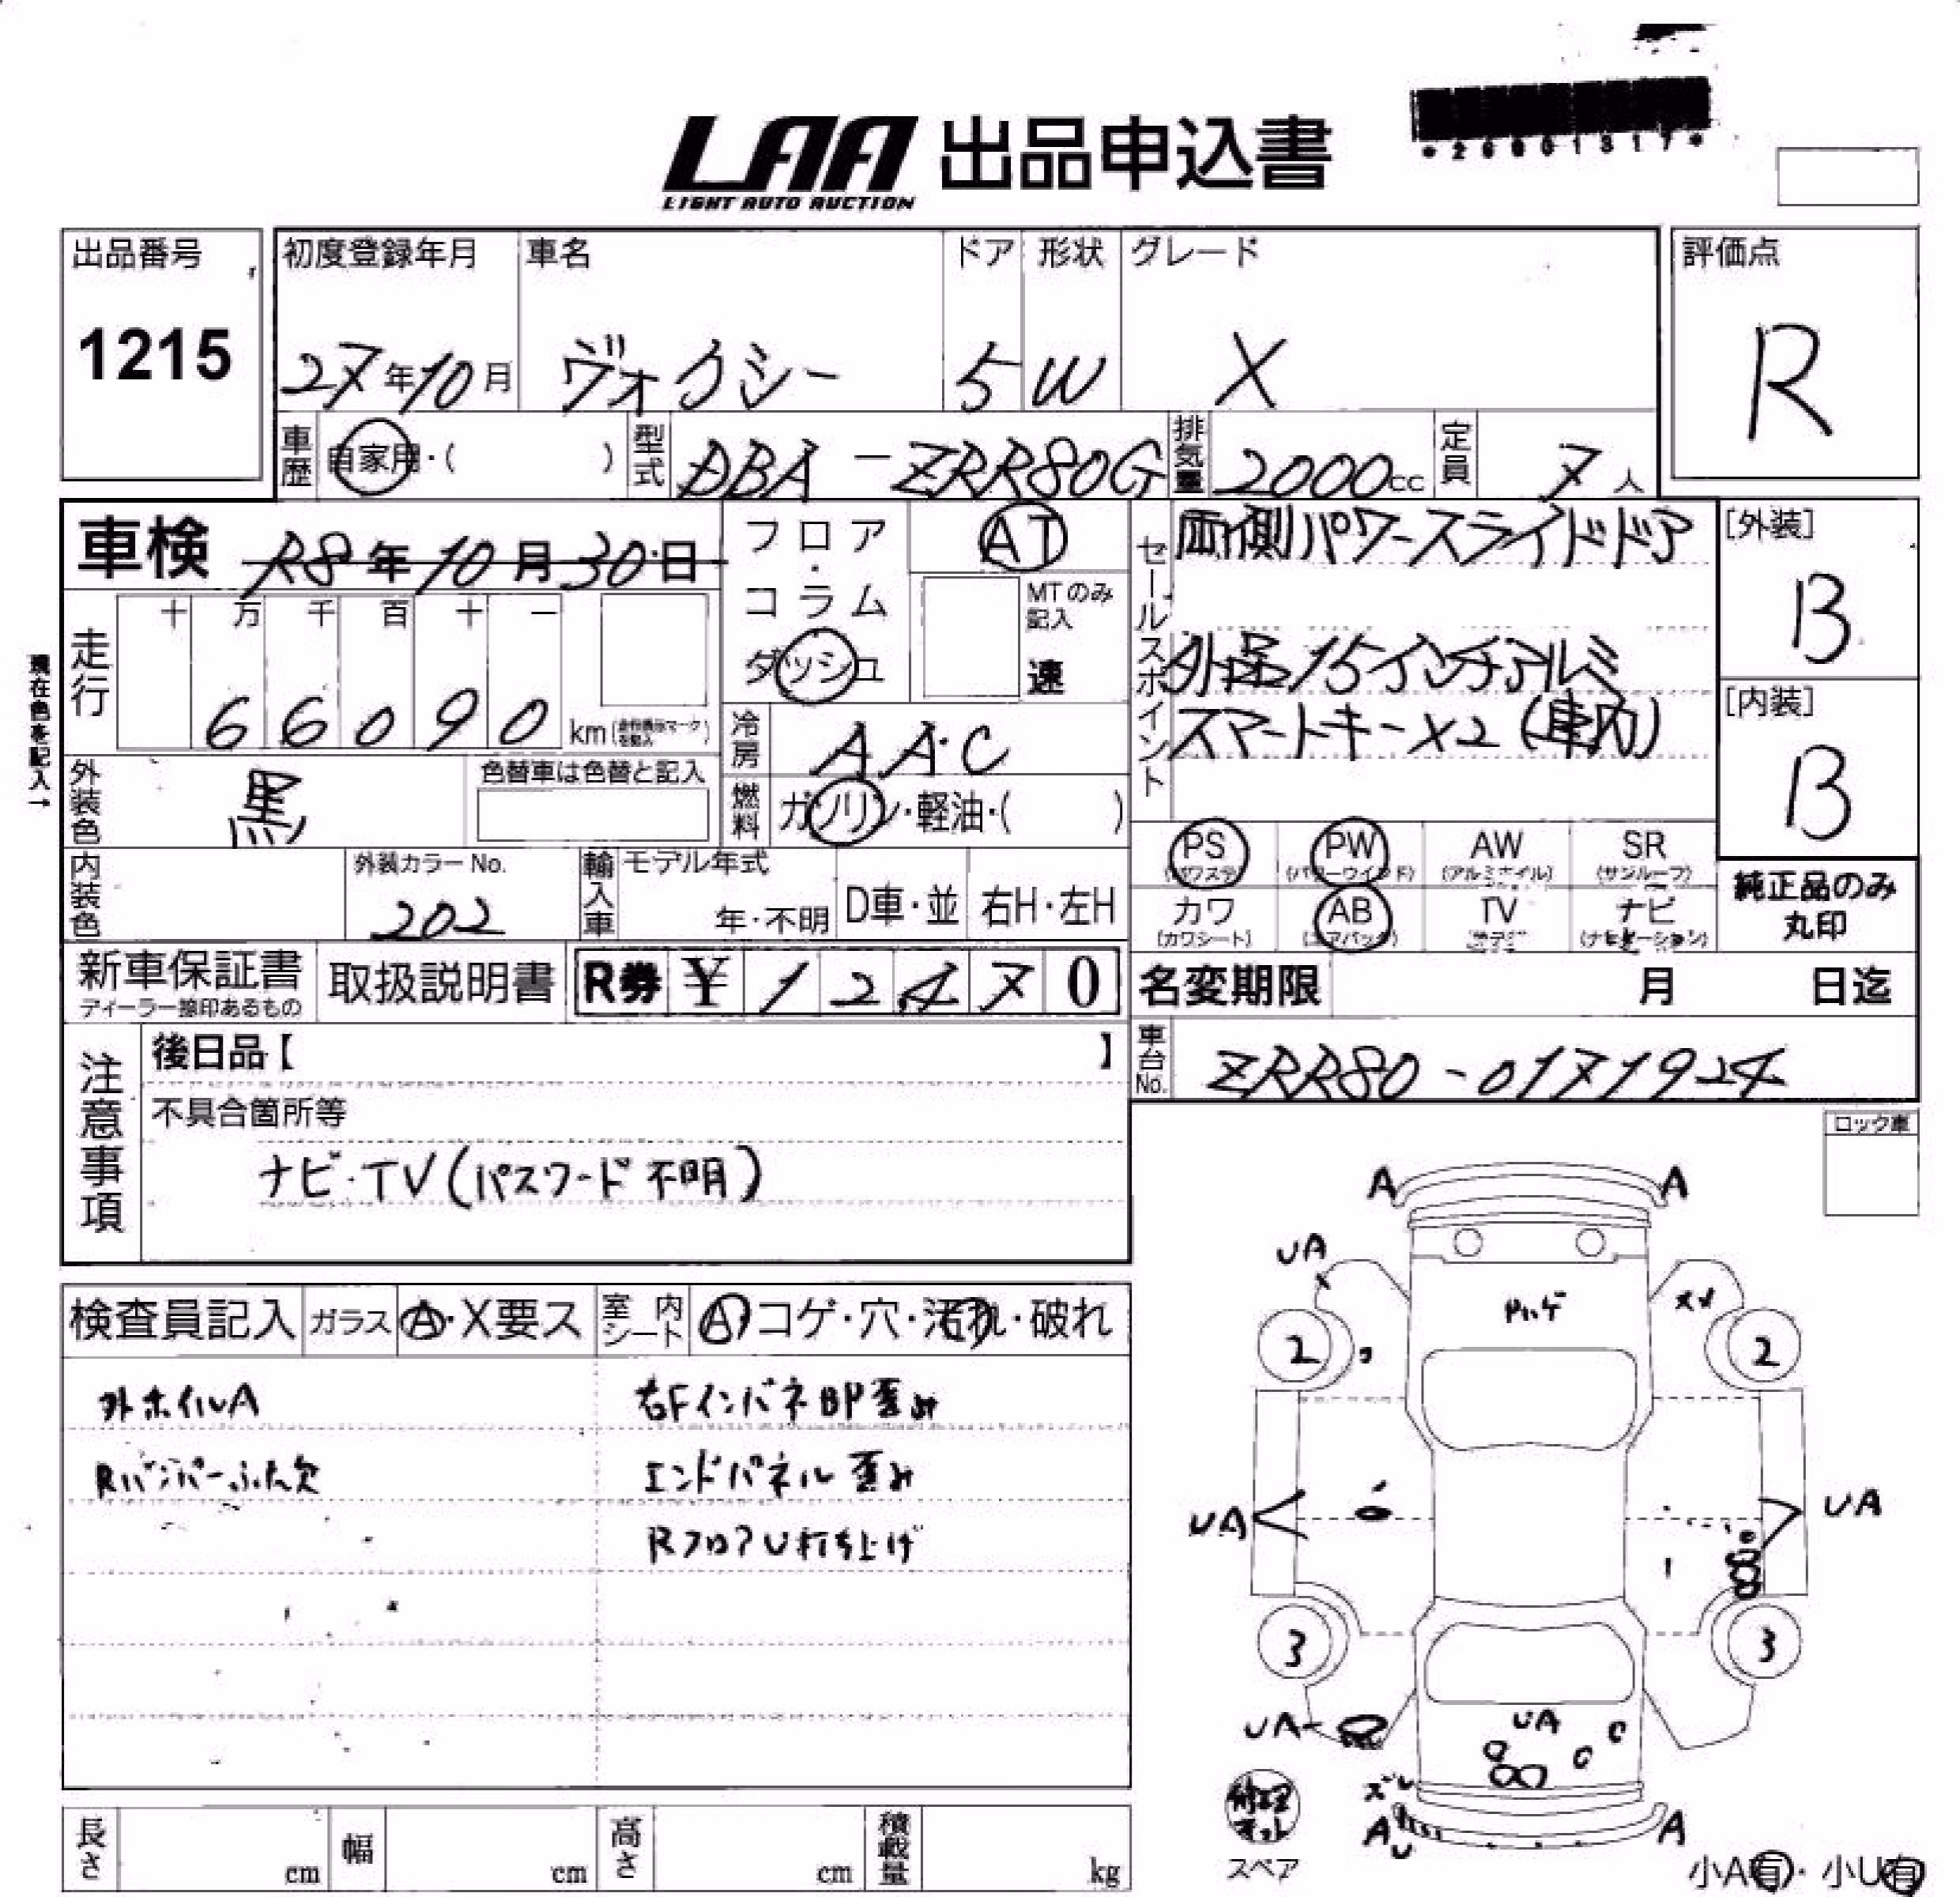 LAA 出品申込書
LIGHT AUTO AUCTION
出品番号
1215
初度登録年月
27年10月
車名
ヴォクシー
ドア
5
形状
W
グレード
X
評価点
R
車歴
自家用・( )
型式
DBA-ZRR80G
排気量
2000cc
定員
7人
車検 R8年10月30日
フロア・コラム
ダッシュ
AT
MTのみ記入
速
セールスポイント
両側パワースライドドア
外品15インチアルミ
スマートキーX2(車内)
[外装]
B
[内装]
B
現在色を記入→
走行
十 万 千 百 十 一
66090 km
外装色
黒
色替車は色替と記入
冷房
AAC
燃料
ガソリン・軽油・( )
内装色
外装カラーNo.
202
輸入車
モデル年式
年・不明
D車・並
右H・左H
PS (パワステ)
PW (パワーウインド)
AW (アルミホイル)
SR (サンルーフ)
カワ (カワシート)
AB (エアバック)
TV
ナビ (ナビゲーション)
純正品のみ丸印
新車保証書
ディーラー捺印あるもの
取扱説明書
R券 ¥12470
名変期限 月 日迄
注意事項
後日品【 】
不具合箇所等
ナビ・TV(パスワード不明)
車台No.
ZRR80-0171924
ロック車
検査員記入
ガラス
A・X要ス
室内シート
A コゲ・穴・汚れ・破れ
外ホイルA
Rバンパーふた欠
右Fインパネ部歪み
エンドパネル歪み
RフロアU打ち上げ
A A
UA
ハゲ
XX
2 2
UA UA
3 3
UA
UA
ズレ
A
U
A
修理キット
スペア
小A有・小U有
長さ cm
幅 cm
高さ cm
積載量 kg